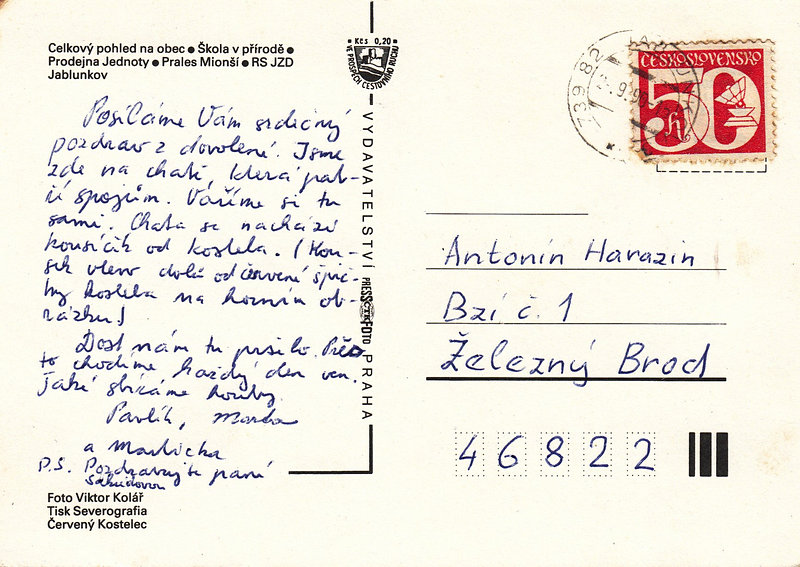 Celkový pohled na obec ● Škola v přírodě ●
Prodejna Jednoty ● Prales Mionší ● RS JZD
Jablunkov
Kčs 0,20
VE PROSPĚCH CESTOVNÍHO RUCHU
Posíláme Vám srdečný
pozdrav z dovolené. Jsme
zde na chatě, která pat-
ří spojům. Vaříme si tu
sami. Chata se nachází
kousíček od kostela. (Kou-
sek vlevo dolů od červené špič-
ky kostela na horním ob-
rázku)
Dost nám tu prší. Přes
to chodíme každý den ven.
Také sbíráme houby.
Pavlík,
a Mařička
P.S. Pozdravujte paní
VYDAVATELSTVÍ PRESSFOTO PRAHA
Foto Viktor Kolář
Tisk Severografia
Červený Kostelec
739 82
ČESKOSLOVENSKO
50 h
Antonín Harazin
Bzí č. 1
Železný Brod
46822